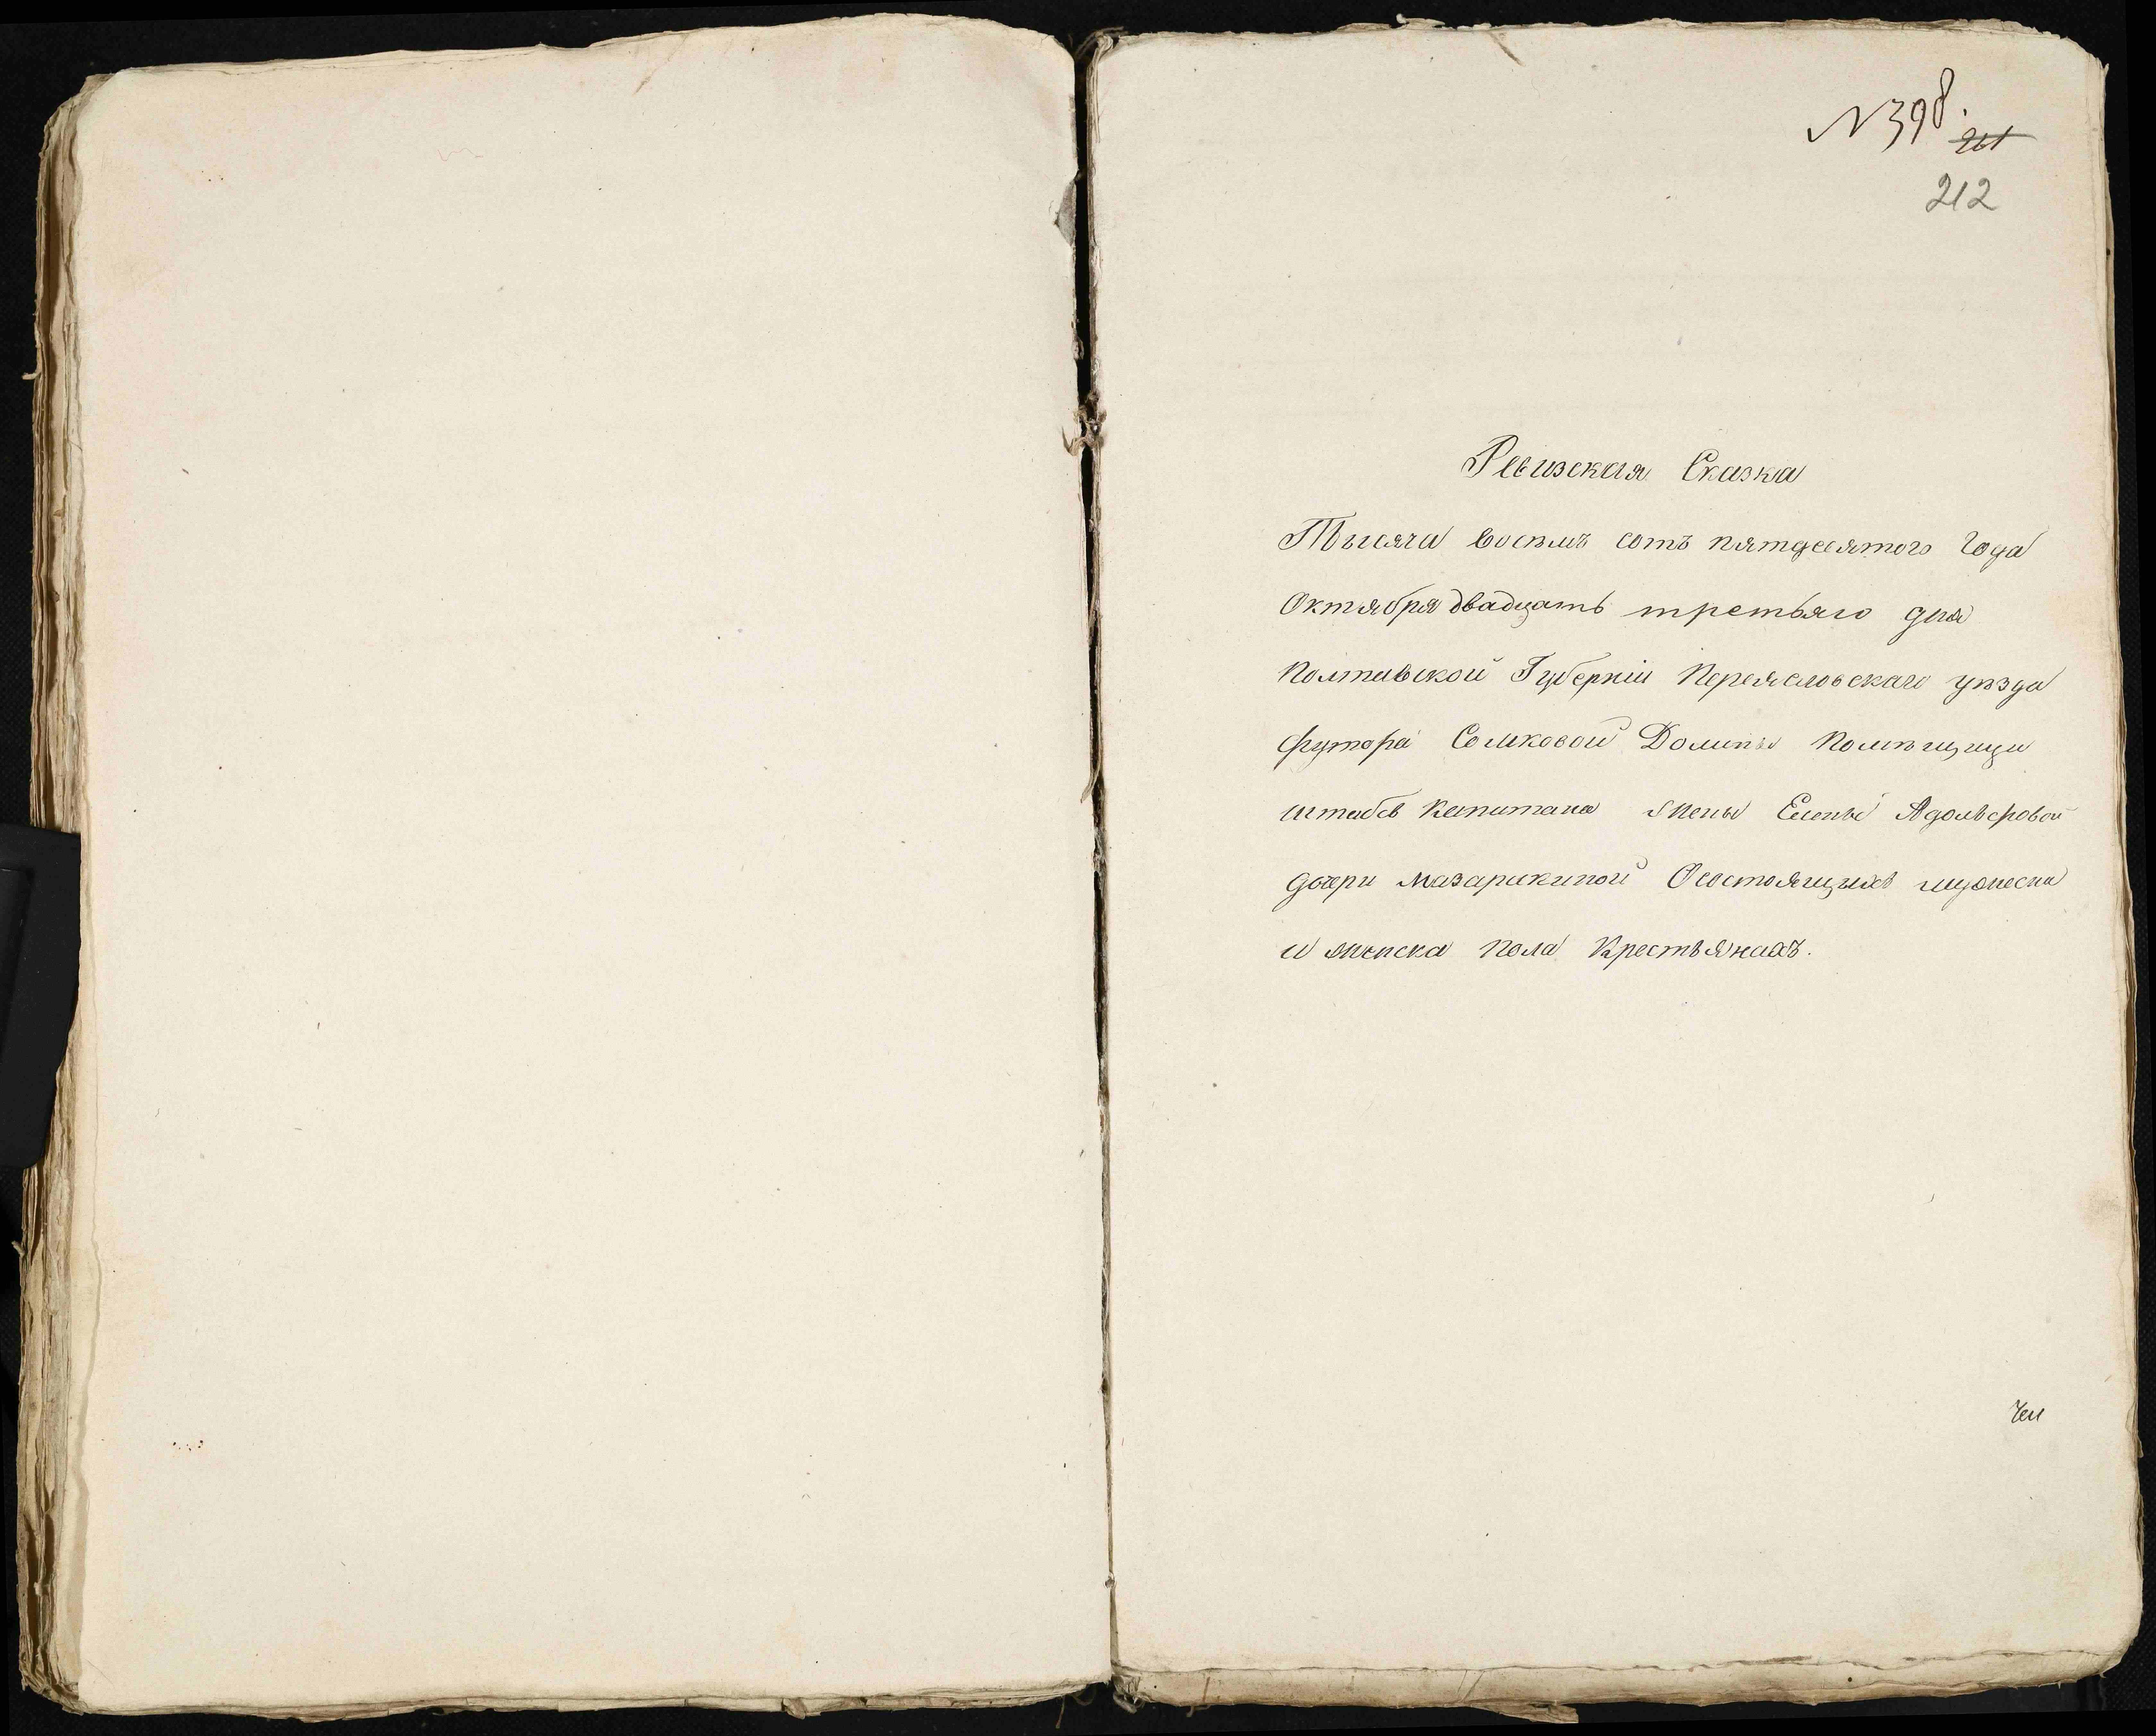 N 398.
211
212
Ревизская Сказка
Тысяча восемъ сотъ пятдесятого Года
Октября двадцать третьяго дня
Полтавской Губерніи Переясловскаго уѣзда
хутора Сомковой Долины Помѣщици
штабсъ Капитана жены Елены Адольфовой
дочери Мазаракиной О состоящихъ мужеска
и женска пола Крестьянахъ.